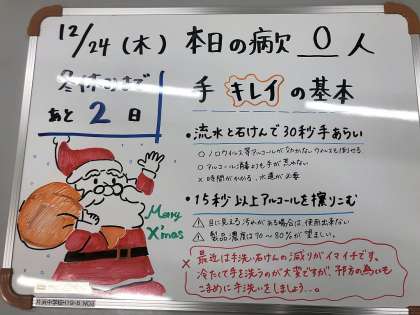 12/24(木) 本日の病欠 0人
冬休みまで
あと 2 日
手 キレイ の基本
・流水と石けんで30秒手あらい
○ノロウイルス等アルコールが効かないウイルスも倒せる
○アルコール消毒よりも手が荒れない
×時間がかかる、水道が必要
・15秒以上アルコールを擦りこむ
⚠目に見える汚れがある場合は、使用出来ない
⚠製品濃度は70~80%が望ましい。
×最近は手洗い石けんの減りがイマイチです。
冷たくて手を洗うのが大変ですが、予防の為にも
こまめに手洗いをしましょう...。
Merry
X'mas